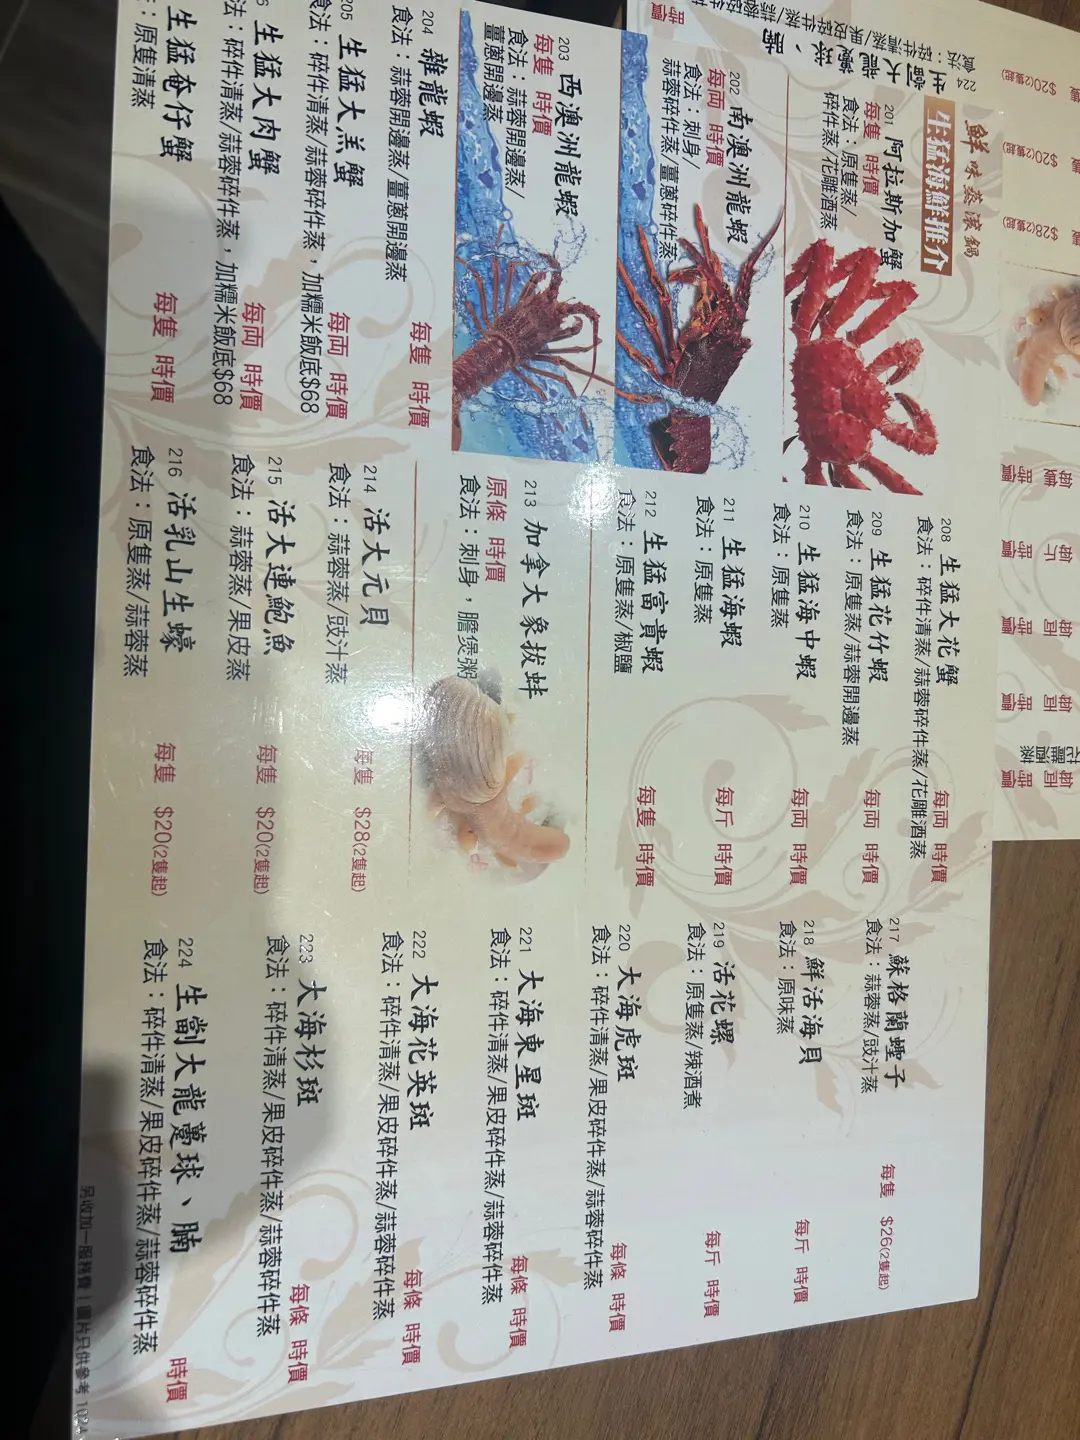 鮮味蒸滾鍋
生猛海鮮推介
201 阿拉斯加蟹
每隻 時價
食法：原隻蒸/
碎件蒸/花雕酒蒸
202 南澳洲龍蝦
每両 時價
食法：刺身/
蒜蓉碎件蒸/薑蔥碎件蒸
203 西澳洲龍蝦
每隻 時價
食法：蒜蓉開邊蒸/
薑蔥開邊蒸
204 雜龍蝦
每隻 時價
食法：蒜蓉開邊蒸/薑蔥開邊蒸
205 生猛大羔蟹
每両 時價
食法：碎件清蒸/蒜蓉碎件蒸，加糯米飯底$68
6 生猛大肉蟹
每両 時價
法：碎件清蒸/蒜蓉碎件蒸，加糯米飯底$68
生猛奄仔蟹
每隻 時價
：原隻清蒸
208 生猛大花蟹
每両 時價
食法：碎件清蒸/蒜蓉碎件蒸/花雕酒蒸
209 生猛花竹蝦
每両 時價
食法：原隻蒸/蒜蓉開邊蒸
210 生猛海中蝦
每両 時價
食法：原隻蒸
211 生猛海蝦
每斤 時價
食法：原隻蒸
212 生猛富貴蝦
每隻 時價
食法：原隻蒸/椒鹽
213 加拿大象拔蚌
原條 時價
食法：刺身，膽煲粥
214 活大元貝
每隻 $28(2隻起)
食法：蒜蓉蒸/豉汁蒸
215 活大連鮑魚
每隻 $20(2隻起)
食法：蒜蓉蒸/果皮蒸
216 活乳山生蠔
每隻 $20(2隻起)
食法：原隻蒸/蒜蓉蒸
217 蘇格蘭蟶子
每隻 $26(2隻起)
食法：蒜蓉蒸/豉汁蒸
218 鮮活海貝
每斤 時價
食法：原味蒸
219 活花螺
每斤 時價
食法：原隻蒸/辣酒煮
220 大海虎斑
每條 時價
食法：碎件清蒸/果皮碎件蒸/蒜蓉碎件蒸
221 大海東星斑
每條 時價
食法：碎件清蒸/果皮碎件蒸/蒜蓉碎件蒸
222 大海花英斑
每條 時價
食法：碎件清蒸/果皮碎件蒸/蒜蓉碎件蒸
223 大海杉斑
每條 時價
食法：碎件清蒸/果皮碎件蒸/蒜蓉碎件蒸
224 生劏大龍躉球、腩
時價
食法：碎件清蒸/果皮碎件蒸/蒜蓉碎件蒸
另收加一服務費｜圖片只供參考 1024
224
時價
$20(2隻起)
$20(2隻起)
$28(2隻起)